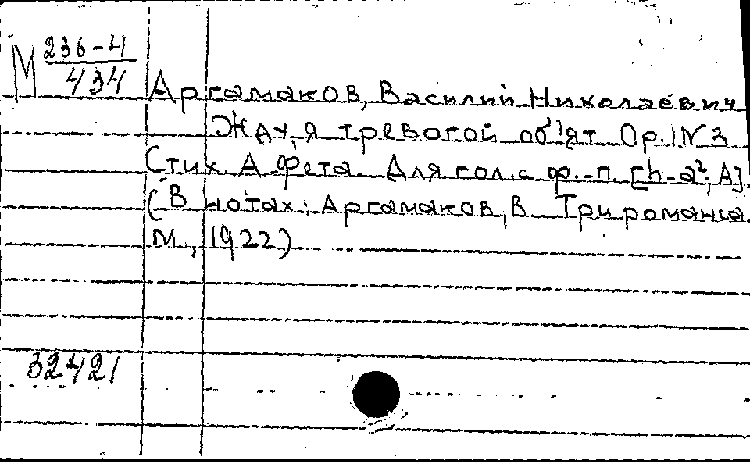 М 236-4
434
Аргамаков, Василий Николаевич
Жду, я тревогой об'ят. Op. N 3
Стих. А. Фета. Для гол. с ф.-п. [h-a², A].
(В нотах: Аргамаков, В. Три романса.
М., 1922)
32421